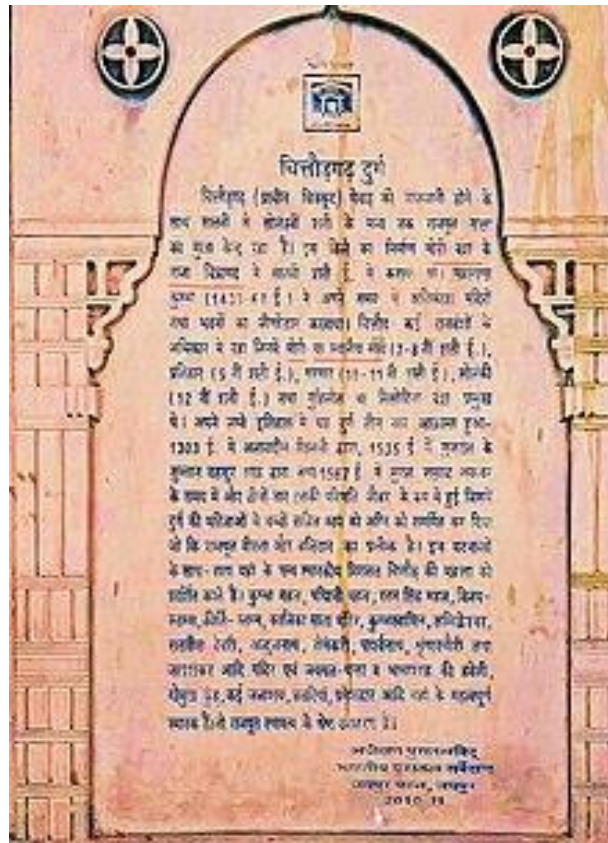 चित्तौड़गढ़ दुर्ग
चित्तौड़गढ़ (प्राचीन चित्रकूट) मेवाड़ की राजधानी होने के
साथ सातवीं से सोलहवीं शती के मध्य तक राजपूत सत्ता
का मुख्य केन्द्र रहा है। इस किले का निर्माण मोरी वंश के
राजा चित्रांगद ने सातवीं शती ई. में कराया था। महाराणा
कुम्भा (1433- ई.) ने अपने समय में अधिकांश मंदिरों
तथा भवनों का जीर्णोद्धार करवाया। चित्तौड़ कई राजवंशों के
अधिकार में रहा जिनमें मोरी या मौर्य (7-8 वीं शती ई.),
प्रतिहार (9 वीं शती ई.), परमार (10-11 वीं शती ई.), सोलंकी
(12 वीं शती ई.) तथा गुहिलोत या सिसोदिया वंश प्रमुख
थे। अपने लम्बे इतिहास में यह दुर्ग तीन बार आक्रान्त हुआ-
1303 ई. में अलाउद्दीन खिलजी द्वारा, 1535 ई. में गुजरात के
सुल्तान बहादुर शाह द्वारा तथा 1567 ई. में मुगल सम्राट अकबर
के समय में और तीनों बार इसकी परिणति जौहर के रूप में हुई जिसमें
दुर्ग की महिलाओं ने बच्चों सहित स्वयं को अग्नि को समर्पित कर दिया
जो कि राजपूत वीरता और बलिदान का प्रतीक है। इन घटनाओं
के साथ-साथ यहां के भव्य स्मारकीय चित्तौड़ की महत्ता को
प्रदर्शित करते हैं। कुम्भा महल, पद्मिनी महल, रतन सिंह महल, विजय-
स्तम्भ, कीर्ति-स्तम्भ, कालिका माता मंदिर, कुम्भस्वामिन, समिद्धेश्वर,
सतबीस देवरी, अद्भुतनाथ, क्षेमंकरी, पार्श्वनाथ, श्रृंगारचौरी तथा
जटाशंकर आदि मंदिर एवं जयमल-पत्ता व भामाशाह की हवेली,
गौमुख कुंड, कई जलाशय, छतरियां, प्रवेशद्वार आदि यहां के महत्वपूर्ण
स्मारक हैं जो राजपूत स्थापत्य के श्रेष्ठ उदाहरण हैं।
अधीक्षण पुरातत्वविद्
भारतीय पुरातत्व सर्वेक्षण
जयपुर मण्डल, जयपुर
2010-11